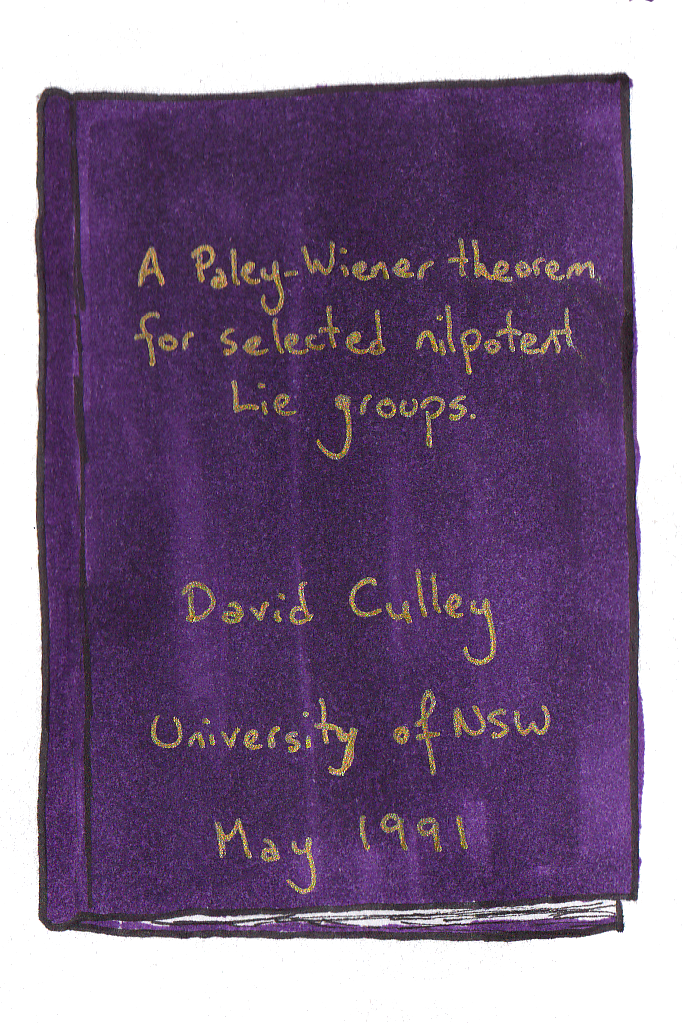 A Paley-Wiener theorem
for selected nilpotent
Lie groups.
David Culley
University of NSW
May 1991